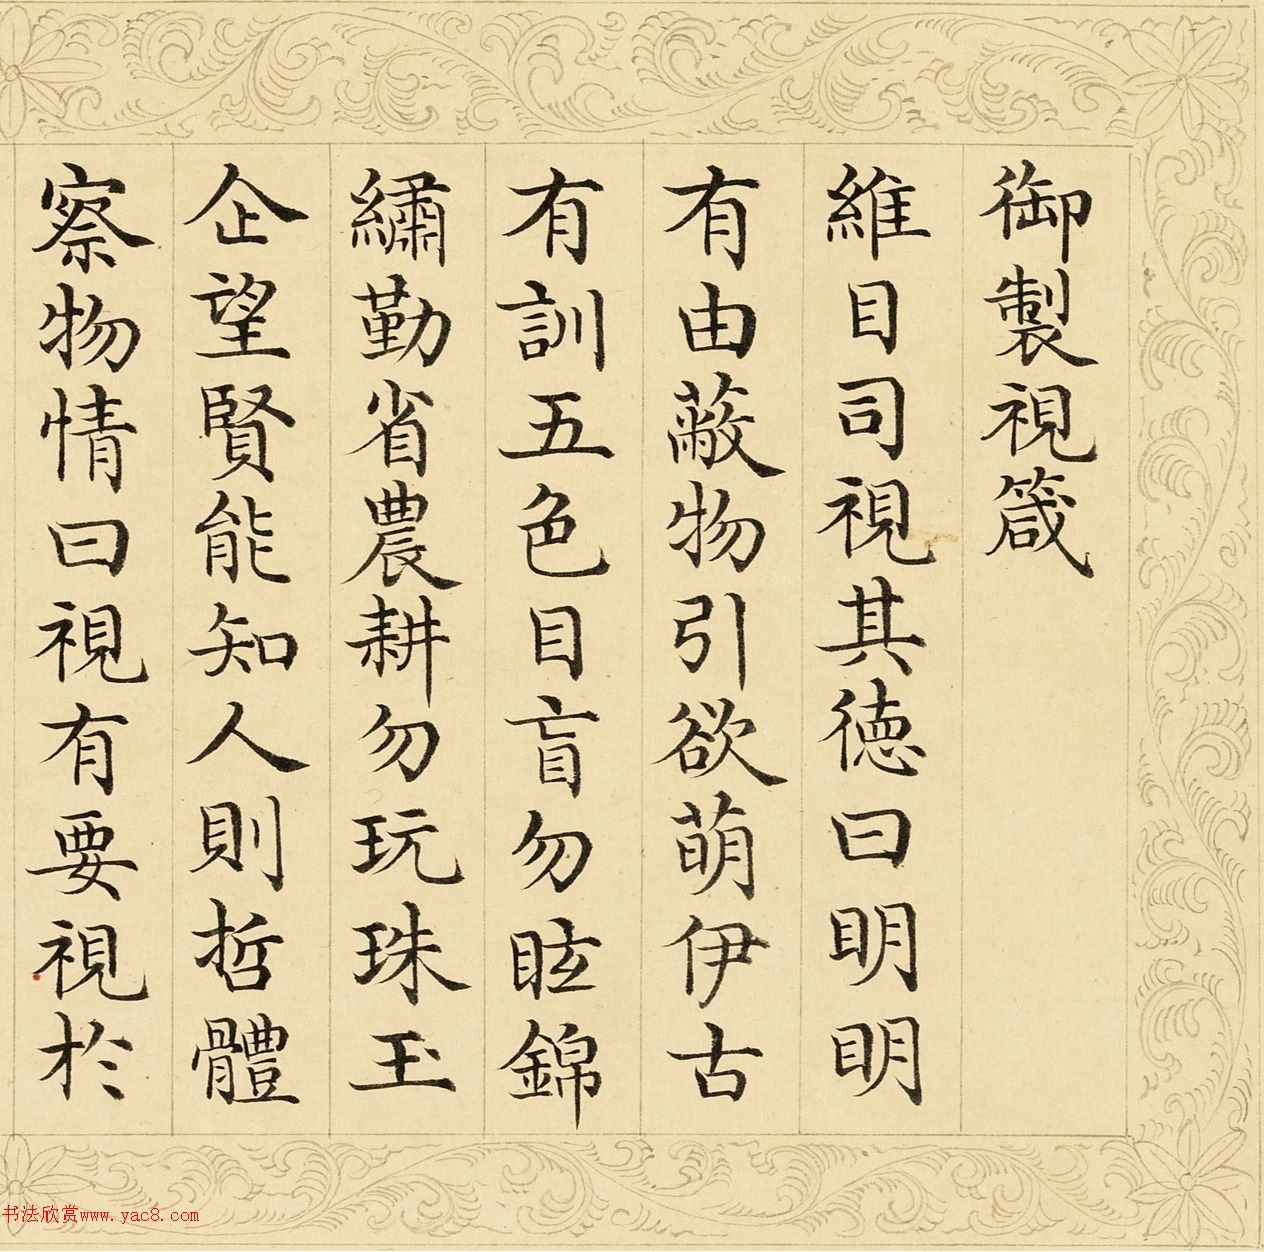 御製視箴
維目司視其德曰明明
有由蔽物引欲萌伊古
有訓五色目盲勿眩錦
繡勤省農耕勿玩珠玉
企望賢能知人則哲體
察物情曰視有要視於
书法欣赏www.yac8.com